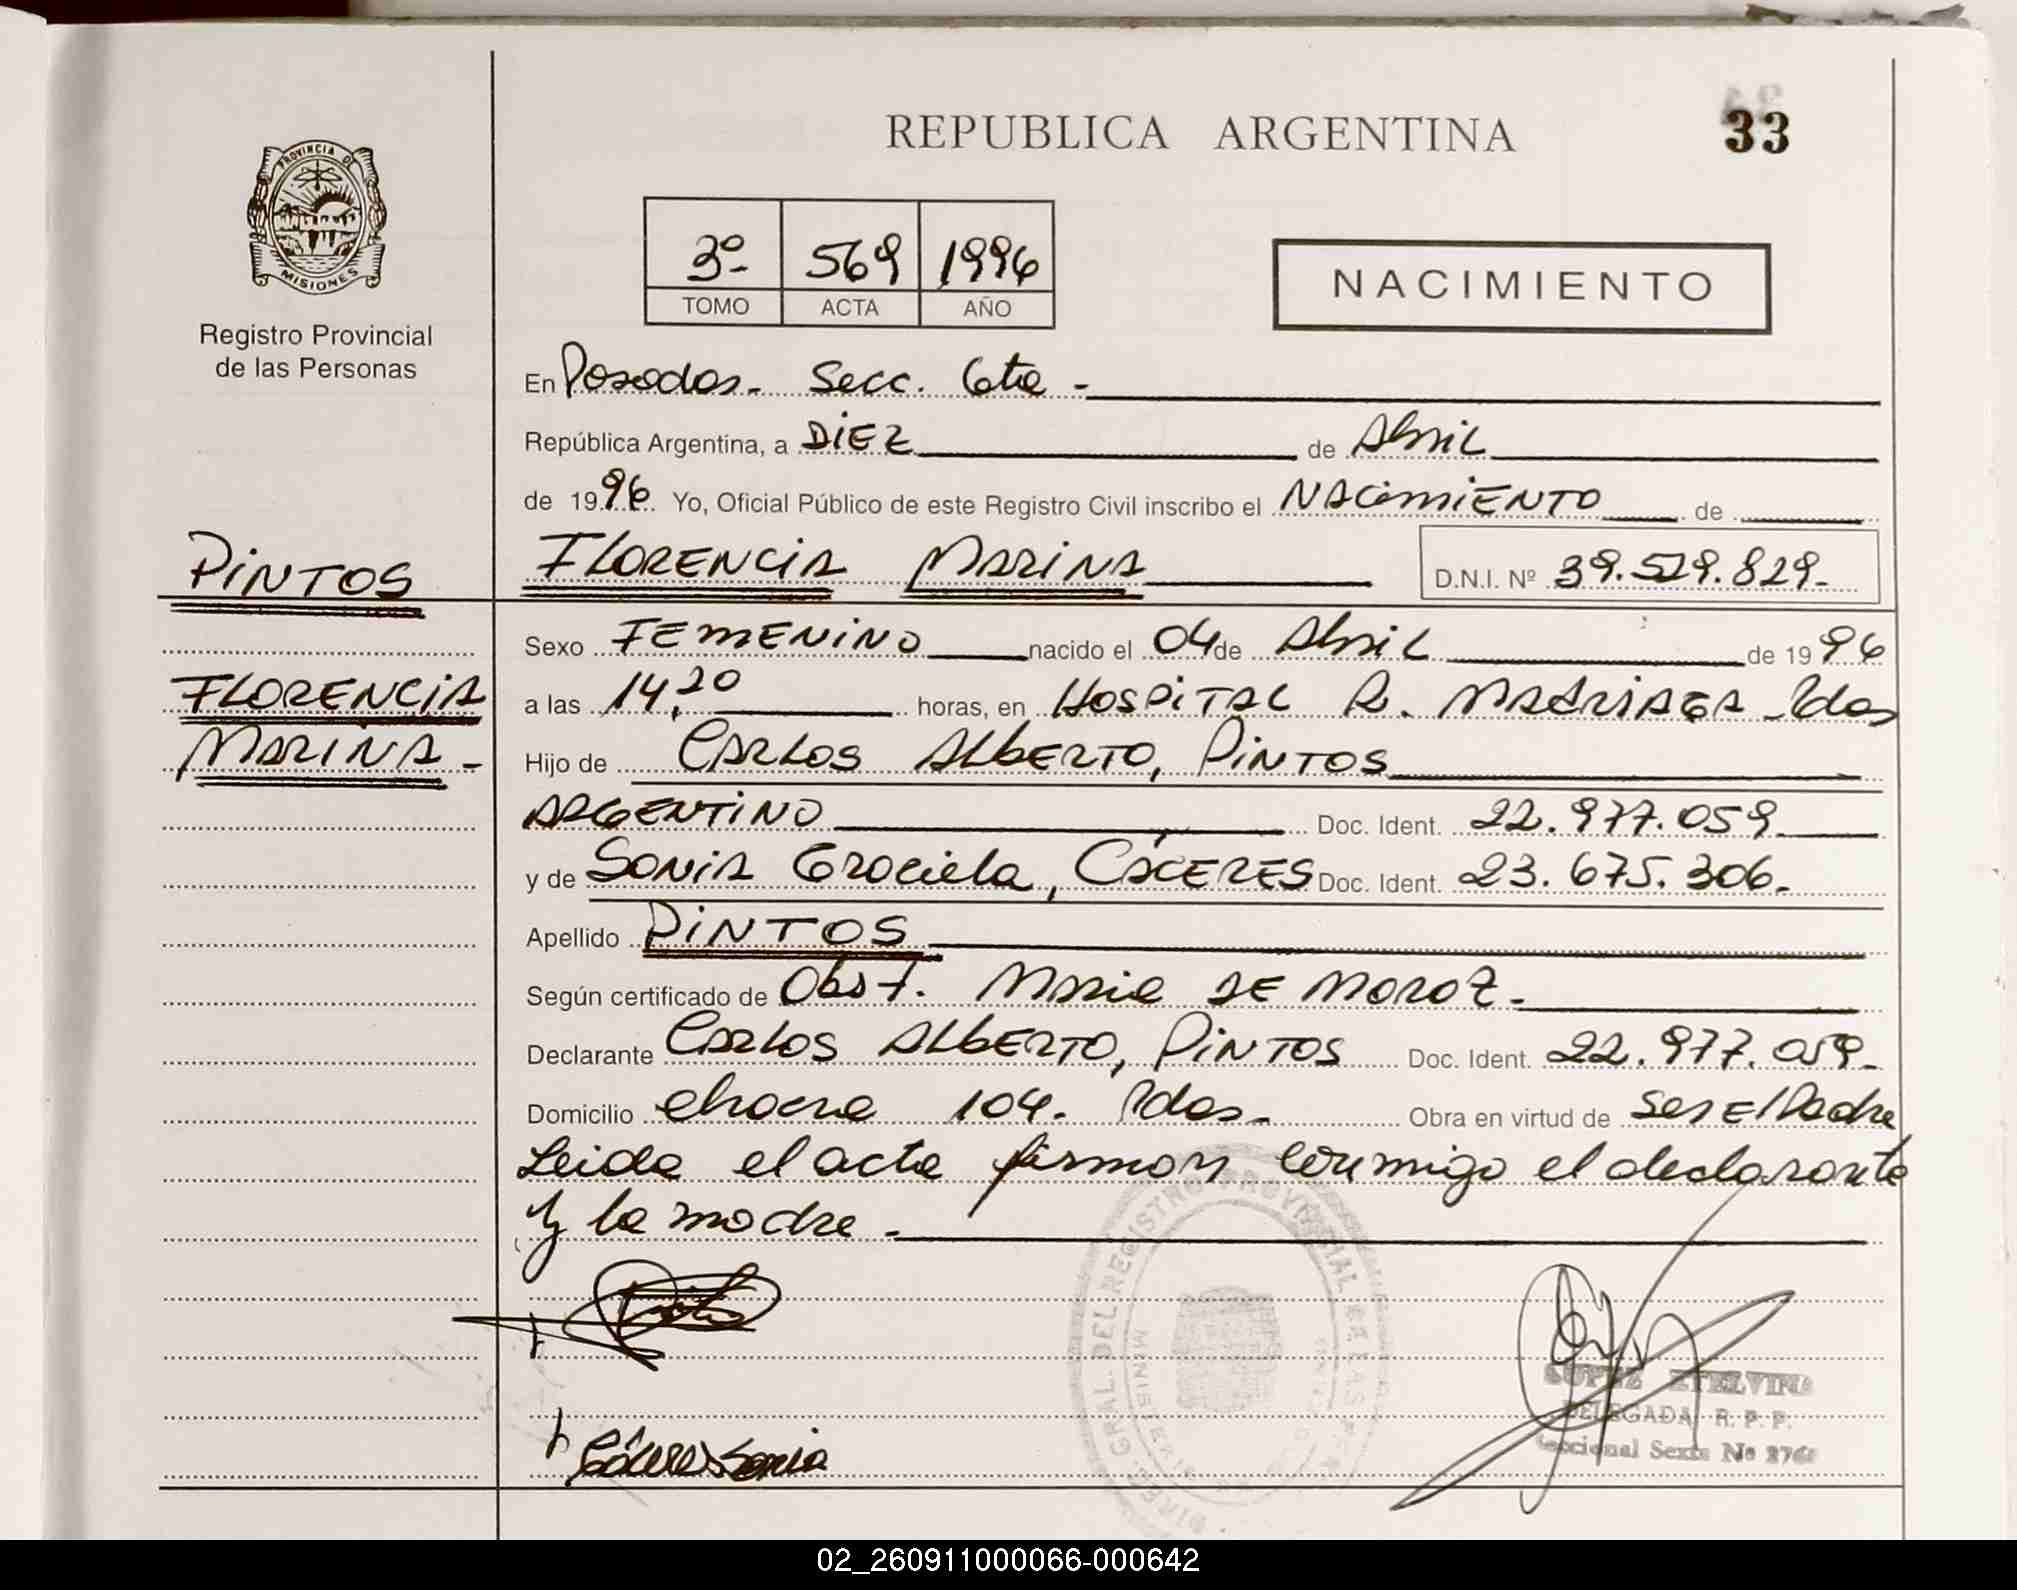 33
REPUBLICA ARGENTINA
PROVINCIA DE
MISIONES
Registro Provincial
de las Personas
3º 569 1996
TOMO ACTA AÑO
NACIMIENTO
En Posadas - Secc. 6ta -
República Argentina, a DIEZ de Abril
de 1996 Yo, Oficial Público de este Registro Civil inscribo el NACIMIENTO de
PINTOS
FLORENCIA MARINA D.N.I. Nº 39.529.829-
FLORENCIA
MARINA -
Sexo FEMENINO nacido el 04 de Abril de 1996
a las 14,20 horas, en HOSPITAL R. MADRIAGA - Pdas
Hijo de CARLOS ALBERTO, PINTOS
ARGENTINO Doc. Ident. 22.977.059
y de SONIA Graciela, CÁCERES Doc. Ident. 23.675.306-
Apellido PINTOS
Según certificado de Obst. Maria DE MOROZ -
Declarante CARLOS ALBERTO, PINTOS Doc. Ident. 22.977.059-
Domicilio 104. Pdas - Obra en virtud de ser El Padre
Leida el acta firman conmigo el declarante
y la madre -
Cáceres Sonia
DIRECC. GRAL. DEL REGISTRO PROVINCIAL DE LAS
LOPEZ ETELVINA
DELEGADA R. P. P.
Seccional Sexta Nº
02_260911000066-000642